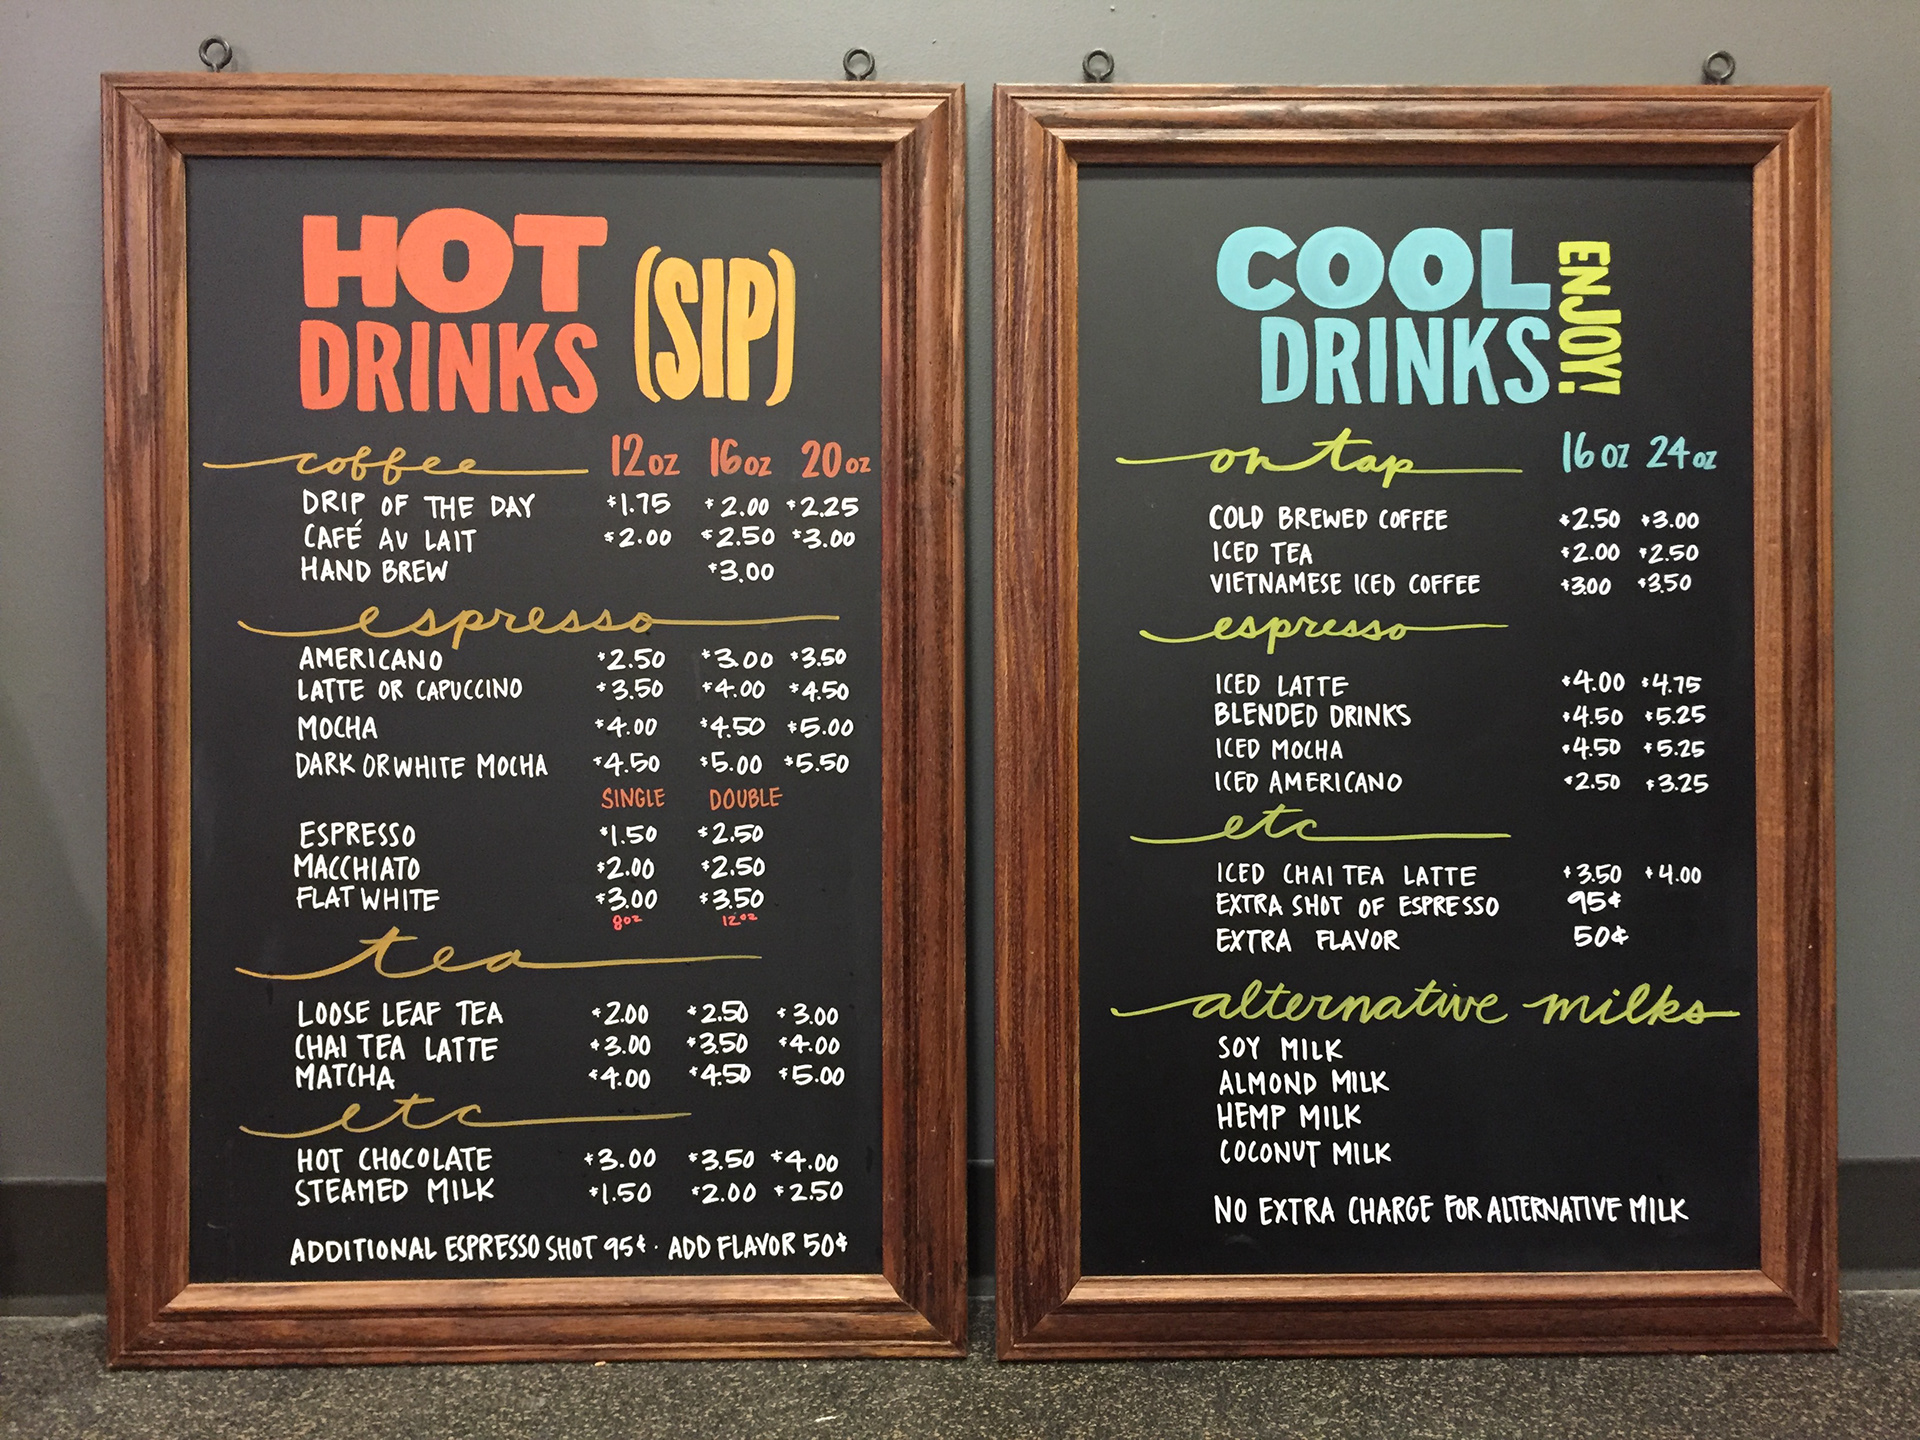 HOT
DRINKS
(SIP)
coffee 12oz 16oz 20oz
DRIP OF THE DAY $1.75 $2.00 $2.25
CAFÉ AU LAIT $2.00 $2.50 $3.00
HAND BREW $3.00
espresso
AMERICANO $2.50 $3.00 $3.50
LATTE OR CAPUCCINO $3.50 $4.00 $4.50
MOCHA $4.00 $4.50 $5.00
DARK OR WHITE MOCHA $4.50 $5.00 $5.50
SINGLE DOUBLE
ESPRESSO $1.50 $2.50
MACCHIATO $2.00 $2.50
FLAT WHITE $3.00 $3.50
8oz 12oz
tea
LOOSE LEAF TEA $2.00 $2.50 $3.00
CHAI TEA LATTE $3.00 $3.50 $4.00
MATCHA $4.00 $4.50 $5.00
etc
HOT CHOCOLATE $3.00 $3.50 $4.00
STEAMED MILK $1.50 $2.00 $2.50
ADDITIONAL ESPRESSO SHOT 95¢ · ADD FLAVOR 50¢
COOL
DRINKS
ENJOY!
on tap 16oz 24oz
COLD BREWED COFFEE $2.50 $3.00
ICED TEA $2.00 $2.50
VIETNAMESE ICED COFFEE $3.00 $3.50
espresso
ICED LATTE $4.00 $4.75
BLENDED DRINKS $4.50 $5.25
ICED MOCHA $4.50 $5.25
ICED AMERICANO $2.50 $3.25
etc
ICED CHAI TEA LATTE $3.50 $4.00
EXTRA SHOT OF ESPRESSO 95¢
EXTRA FLAVOR 50¢
alternative milks
SOY MILK
ALMOND MILK
HEMP MILK
COCONUT MILK
NO EXTRA CHARGE FOR ALTERNATIVE MILK